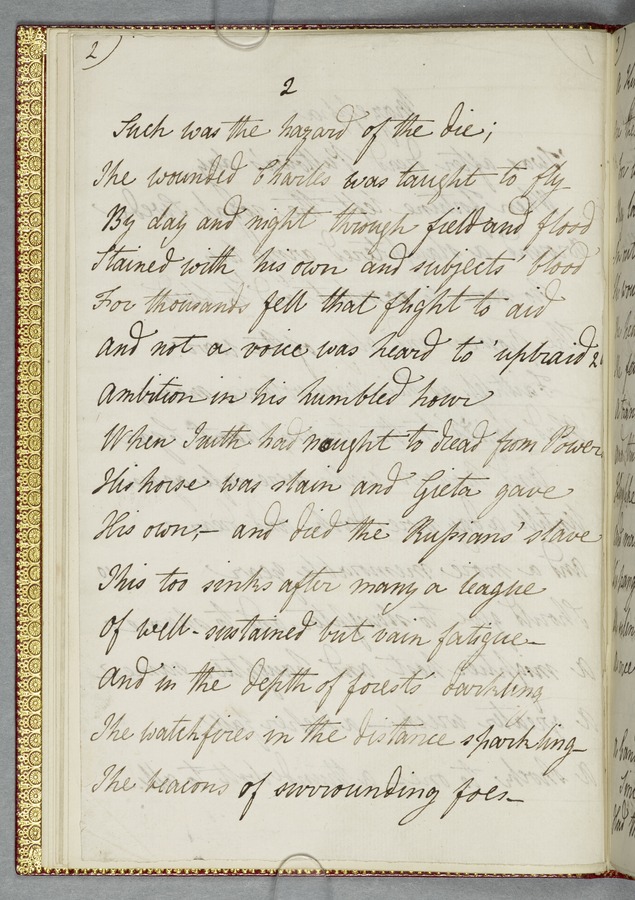 2)
2
Such was the hazard of the die;
The wounded Charles was taught to fly
By day and night through field and flood
Stained with his own and subjects' blood
For thousands fell that flight to aid
And not a voice was heard to 'upbraid
Ambition in his humbled hour
When Truth had nought to dread from Power
His horse was slain and Gieta gave
His own,– and died the Russians' slave
This too sinks after many a league
Of well-sustained but vain fatigue–
And in the depth of forests darkling
The watchfires in the distance sparkling–
The beacons of surrounding foes–